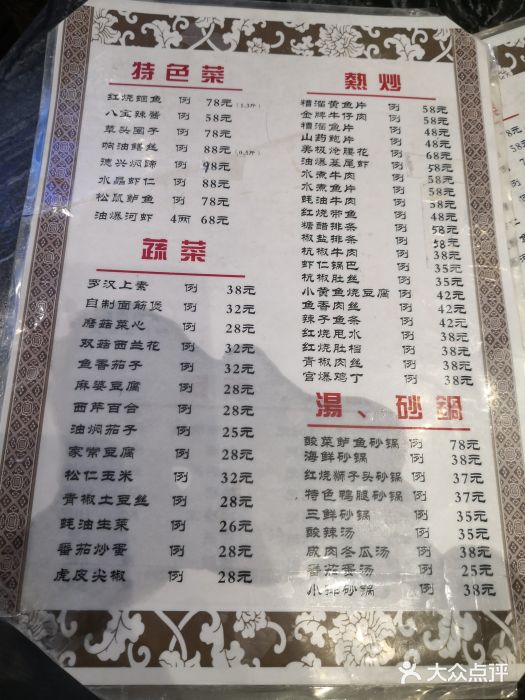 特色菜
红烧鮰鱼 例 78元(1.3斤)
八宝辣酱 例 58元
草头圈子 例 78元
响油鳝丝 例 88元(0.5斤)
德兴焖蹄 例 98元
水晶虾仁 例 88元
松鼠鲈鱼 例 78元
油爆河虾 4两 68元
蔬菜
罗汉上素 例 38元
自制面筋煲 例 32元
蘑菇菜心 例 28元
双菇西兰花 例 32元
鱼香茄子 例 32元
麻婆豆腐 例 28元
西芹百合 例 28元
油焖茄子 例 25元
家常豆腐 例 28元
松仁玉米 例 32元
青椒土豆丝 例 28元
蚝油生菜 例 26元
番茄炒蛋 例 28元
虎皮尖椒 例 28元
熱炒
糟溜黄鱼片 例 58元
金牌牛仔肉 例 58元
糟溜鱼片 例 48元
山药鲍片 例 48元
美极炝腰花 例 68元
油爆基尾虾 例 58元
水煮牛肉 例 58元
水煮鱼片 例 58元
蚝油牛肉 例 48元
红烧带鱼 例 48元
糖醋排条 例 58元
椒盐排条 例 58元
杭椒牛肉 例 38元
虾仁锅巴 例 35元
杭椒肚丝 例 35元
小黄鱼烧豆腐 例 42元
鱼香肉丝 例 42元
辣子鱼条 例 42元
红烧甩水 例 38元
红烧肚档 例 38元
青椒肉丝 例 38元
宫爆鸡丁 例 38元
湯、砂鍋
酸菜鲈鱼砂锅 例 78元
海鲜砂锅 例 38元
红烧狮子头砂锅 例 37元
特色鸭腿砂锅 例 37元
三鲜砂锅 例 35元
酸辣汤 例 35元
咸肉冬瓜汤 例 38元
番茄蛋汤 例 25元
小排砂锅 例 38元
大众点评